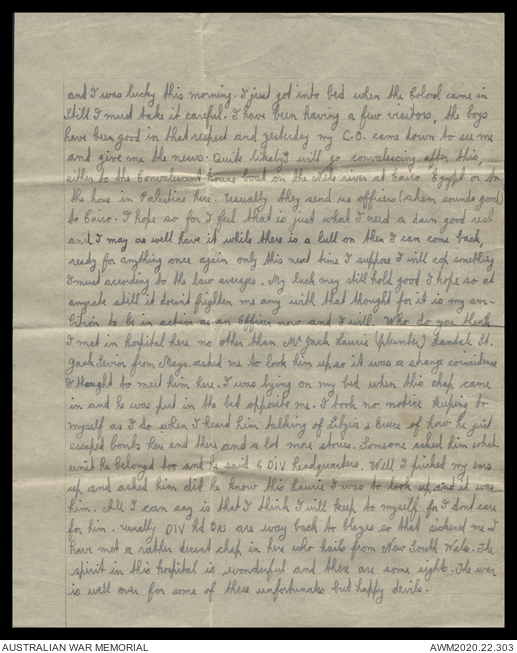 and I was lucky this morning. I just got into bed when the Colonol came in
Still I must take it careful. I have been having a few visitors, the boys
have been good in that respect and yesterday my C.O. came down to see me
and give me the news. Quite likely I will go convalescing after this,
either to the Convalescent house boat on the Nile river at Cairo Egypt or to
the home in Palestine here. Usually they send us officers (ahem sounds good)
to Cairo. I hope so for I feel that is just what I need a darn good rest
and I may as well have it while there is a lull on then I can come back,
ready for anything once again only this next time I suppose I will cop something
I must according to the law averages. My luck may still hold good I hope so at
anyrate still it doesnt frighten me any with that thought for it is my am-
bition to be in action as an Officer now and I will. Who do you think
I met in hospital here no other than Mr Jack Laurie (plumber) St.
Jack from Mags. asked me to look him up so it was a strange coincidence
I thought to meet him here. I was lying on my bed when this chap came
in and he was put in the bed opposite me. I took no notice keeping to
myself as I do when I heard him talking of Libya & how he just
escaped bombs here and there and a lot more stories. Someone asked him what
unit he belonged too and he said 6 DIV Headquarters. Well I pricked my ears
up and asked him did he know this Laurie I was to look up and it was
him. All I can say is that I think I will keep to myself for I dont care
for him. Usually DIV Hd are way back to blazes so that sickened me. I
have met a rather decent chap in here who hails from New South Wales. The
spirit in this hospital is wonderful and there are some sights. The war
is well over for some of these unfortunates but happy devils.
AUSTRALIAN WAR MEMORIAL
AWM2020.22.303